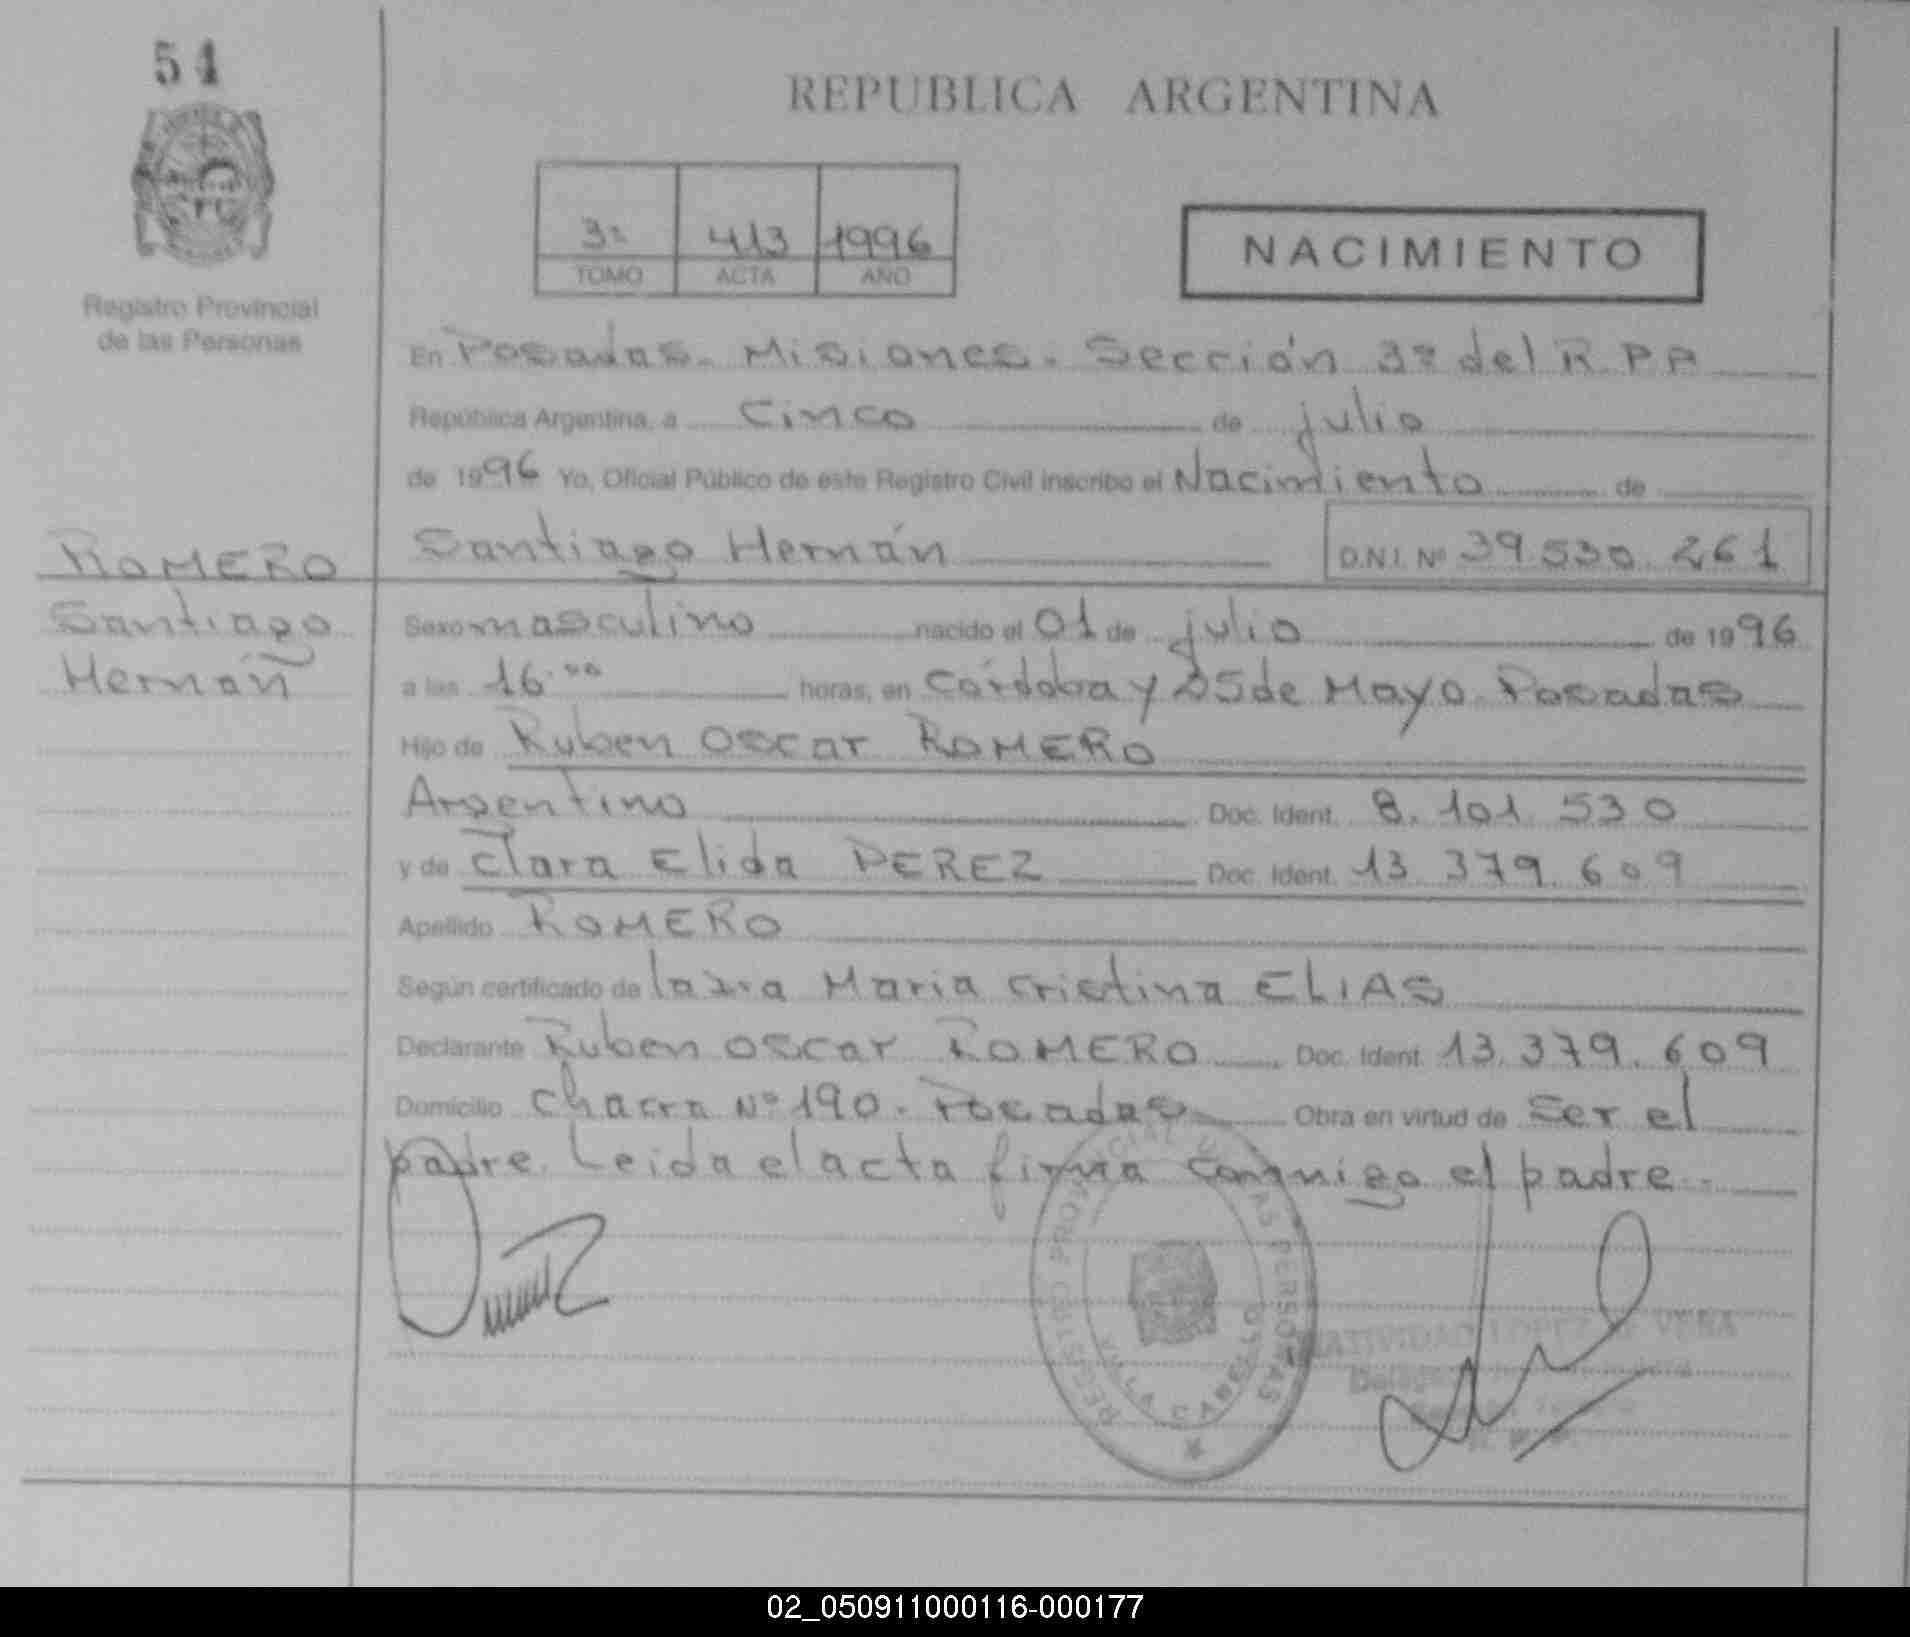 54
REPUBLICA ARGENTINA
3º 413 1996
TOMO ACTA AÑO
NACIMIENTO
Registro Provincial
de las Personas
En Posadas. Misiones. Sección 3º del R P P
República Argentina, a Cinco de julio
de 1996 Yo, Oficial Público de este Registro Civil inscribo el Nacimiento de
Santiago Hernán D.N.I. Nº 39.530.261
ROMERO
Santiago
Hernán
Sexo masculino nacido el 01 de julio de 1996
a las 16.00 horas, en Córdoba y 25 de Mayo. Posadas
Hijo de Ruben Oscar ROMERO
Argentino Doc. Ident. 8.101.530
y de Clara Elida PEREZ Doc. Ident. 13.379.609
Apellido ROMERO
Según certificado de la Maria Cristina ELIAS
Declarante Ruben Oscar ROMERO Doc. Ident. 13.379.609
Domicilio Chacra Nº 190. Posadas Obra en virtud de ser el
padre. Leida el acta firma conmigo el padre.
REGISTRO PROVINCIAL DE LAS PERSONAS
VILLA CABELLO
NATIVIDAD LOPEZ VERA
02_050911000116-000177